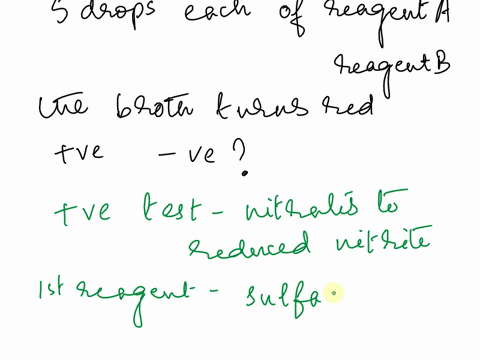 5 drops each of reagent A
reagent B
the broth turns red
+ve - ve ?
+ve test - nitrates to
reduced nitrite
1st reagent - sulfa